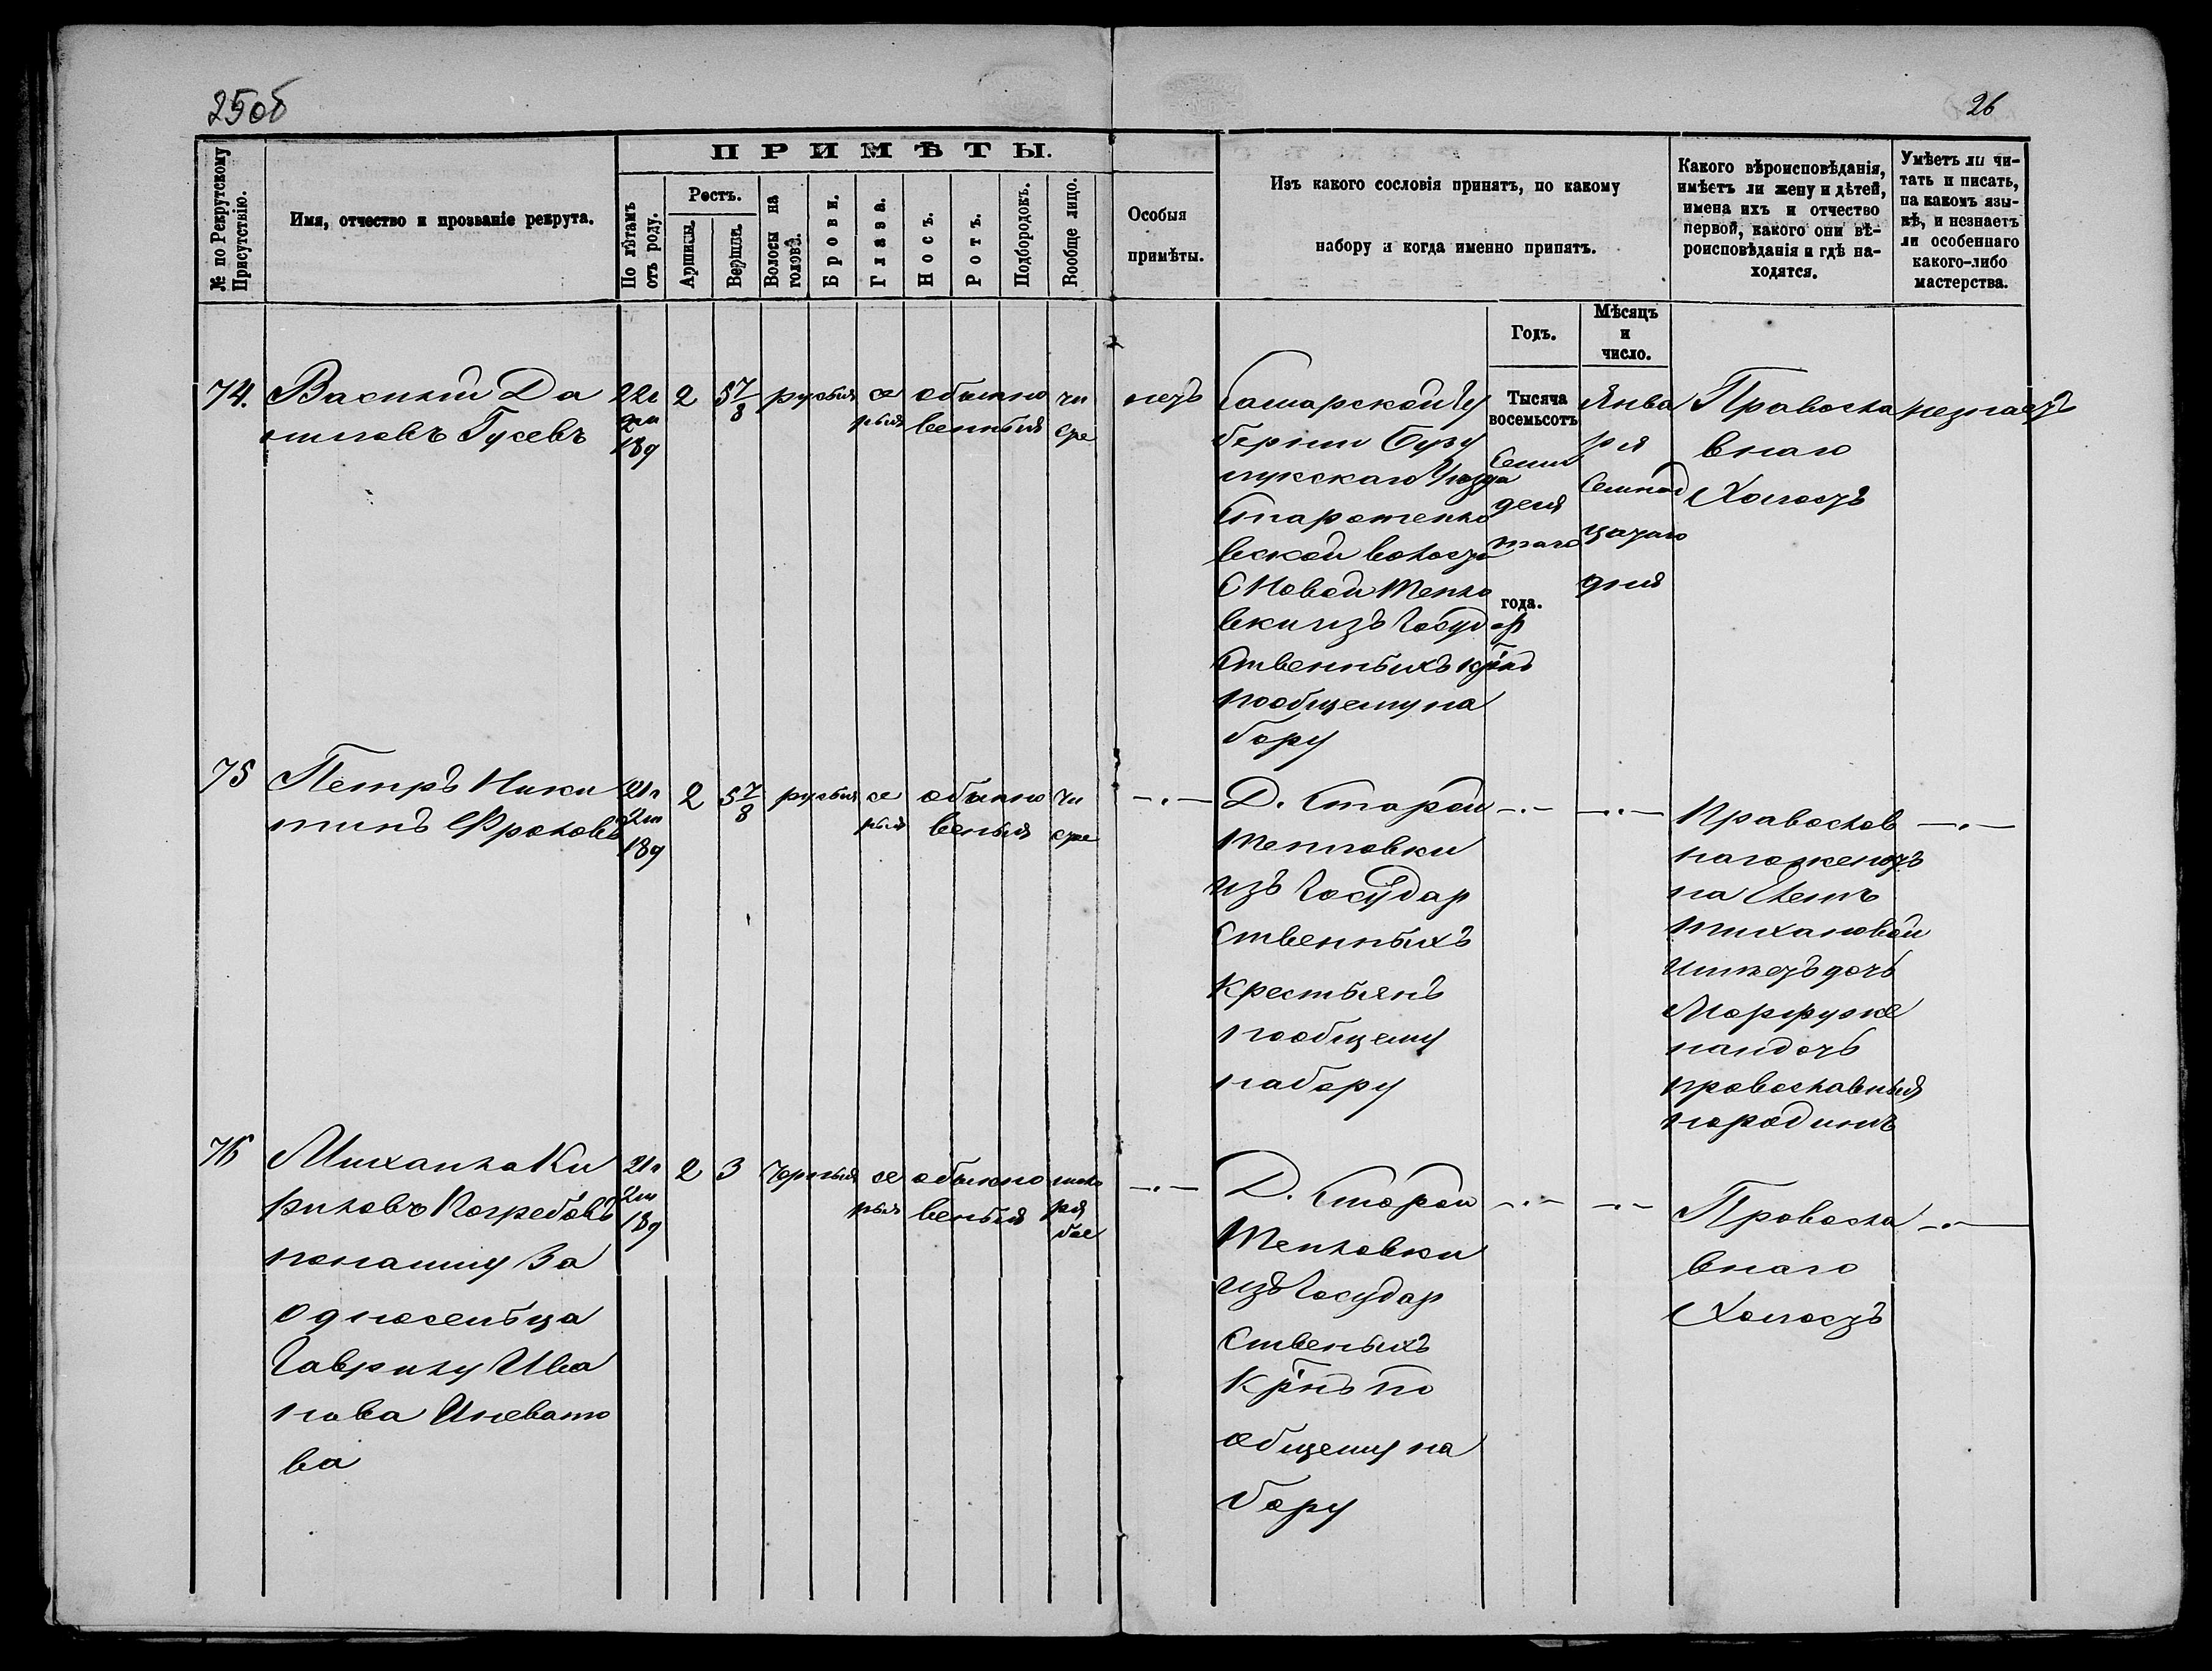 25об
26
№ по Рекрутскому Присутствію.
Имя, отчество и прозваніе рекрута.
ПРИМѢТЫ.
По лѣтамъ отъ роду.
Ростъ.
Аршины.
Вершки.
Волосы на головѣ.
Брови.
Глаза.
Носъ.
Ротъ.
Подбородокъ.
Вообще лицо.
Особыя
примѣты.
Изъ какого сословія принятъ, по какому
набору и когда именно принятъ.
Годъ.
Мѣсяцъ
и
число.
Какого вѣроисповѣданія,
имѣетъ ли жену и дѣтей,
имена ихъ и отчество
первой, какого они вѣ-
роисповѣданія и гдѣ на-
ходятся.
Умѣетъ ли чи-
тать и писать,
на какомъ язы-
кѣ, и незнаетъ
ли особеннаго
какого-либо
мастерства.
74.
Василій Да
ниловъ Гусевъ
22л
2м
18д
2
5 7/8
русыя
се
рыя
обыкно
венныя
чи
сте
нетъ
Самарской гу
берніи Бузу
лукскаго Уезда
Старотепло
вской волости
С Новой Тепло
вки изъ Государ
ственныхъ крнъ
пообщему на
бору
Тысяча
восемьсотъ
Семи
деся
таго
года.
Янва
ря
Семнад
цатаго
дня
Правосла
внаго
Холостъ
незнаетъ
75
Петръ Ники
тинъ Фроловъ
21л
2м
18д
2
5 7/8
русыя
се
рыя
обыкно
веныя
чи
сте
—·—
Д. Старой
Тепловки
изъ Государ
ственныхъ
крестьянъ
пообщему
набору
—·—
—·—
Правослов
нагоженатъ
на
Тихановой
имеетъ дочь
дочь
православныя
народинѣ
—·—
76
Михайла Ки
риловъ Погребовъ
понайму За
односельца
Гаврилу Ива
нова
ва
21л
2м
18д
2
3
Черныя
се
рыя
обыкно
веныя
ря
бое
—·—
Д. Старой
Тепловки
изъ Государ
ственыхъ
Крнъ по
общему на
бору
—·—
—·—
Провосла
внаго
Холостъ
—·—